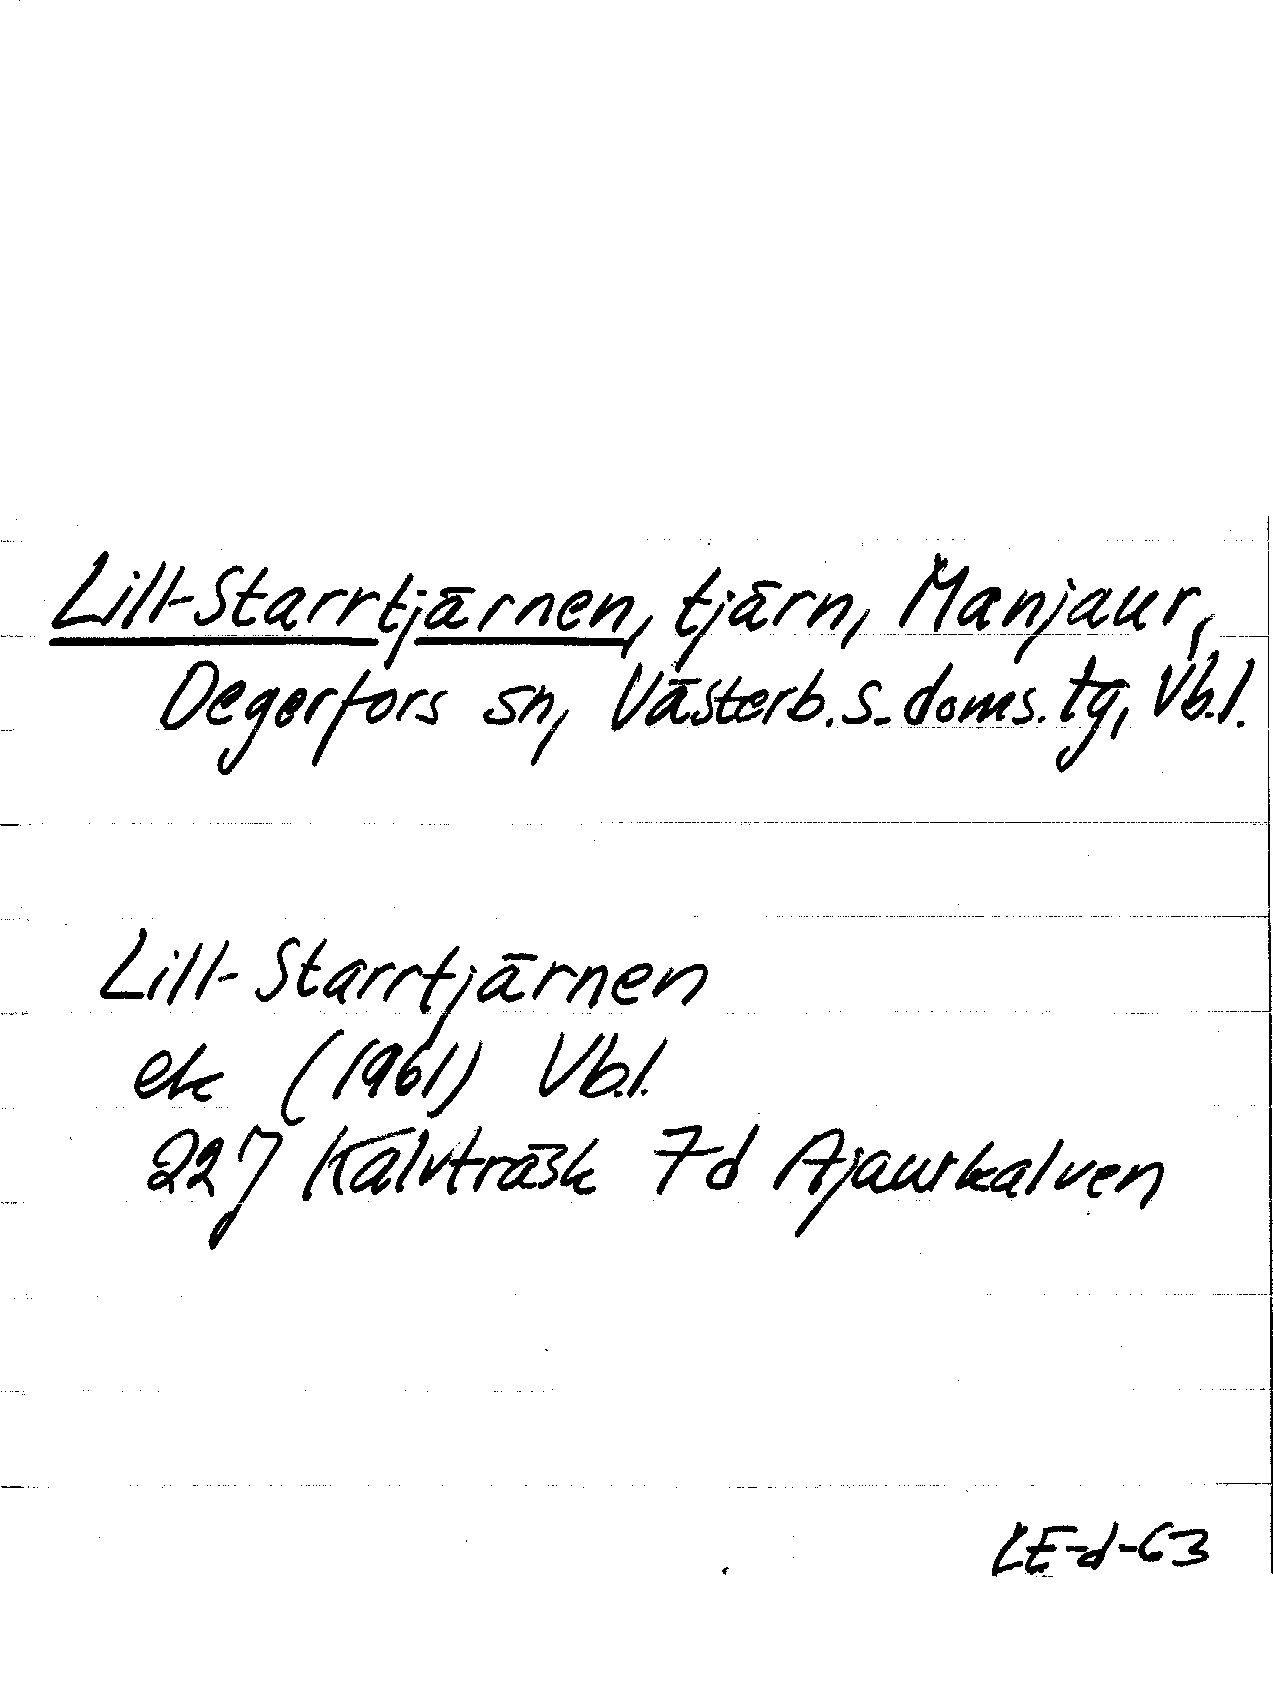 Lill-Starrtjärnen, tjärn, Manjaur,
Degerfors sn, Västerb. s. doms. tg, Vb.l.
Lill-Starrtjärnen
ek (1961) Vb.l.
22J Kalvträsk 7d Ajaurkalven
LE-d-63